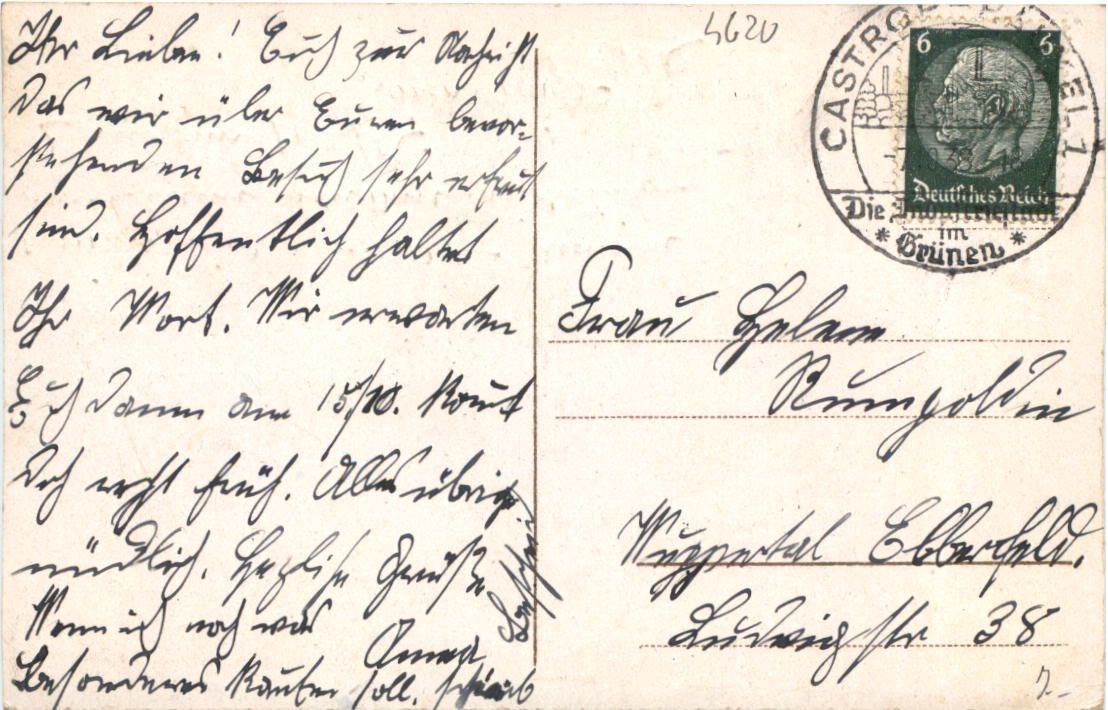 Ihr Lieben! Euch zur Nachricht
das wir über Euren bevor-
stehenden Besuch sehr erfreut
sind. Hoffentlich haltet
Ihr Wort. Wir erwarten
Euch dann am 15/10. Kommt
doch recht früh. Alles übrige
mündlich. Herzliche Grüße
Anna
Wenn ich noch was
Besonderes kaufen soll, schreib
Bescheid
4620
CASTROP
6 6
Deutsches Reich
Die Industriestadt
im
* Grünen *
Frau Helene
Wuppertal Elberfeld.
Ludwigstr 38
7.-